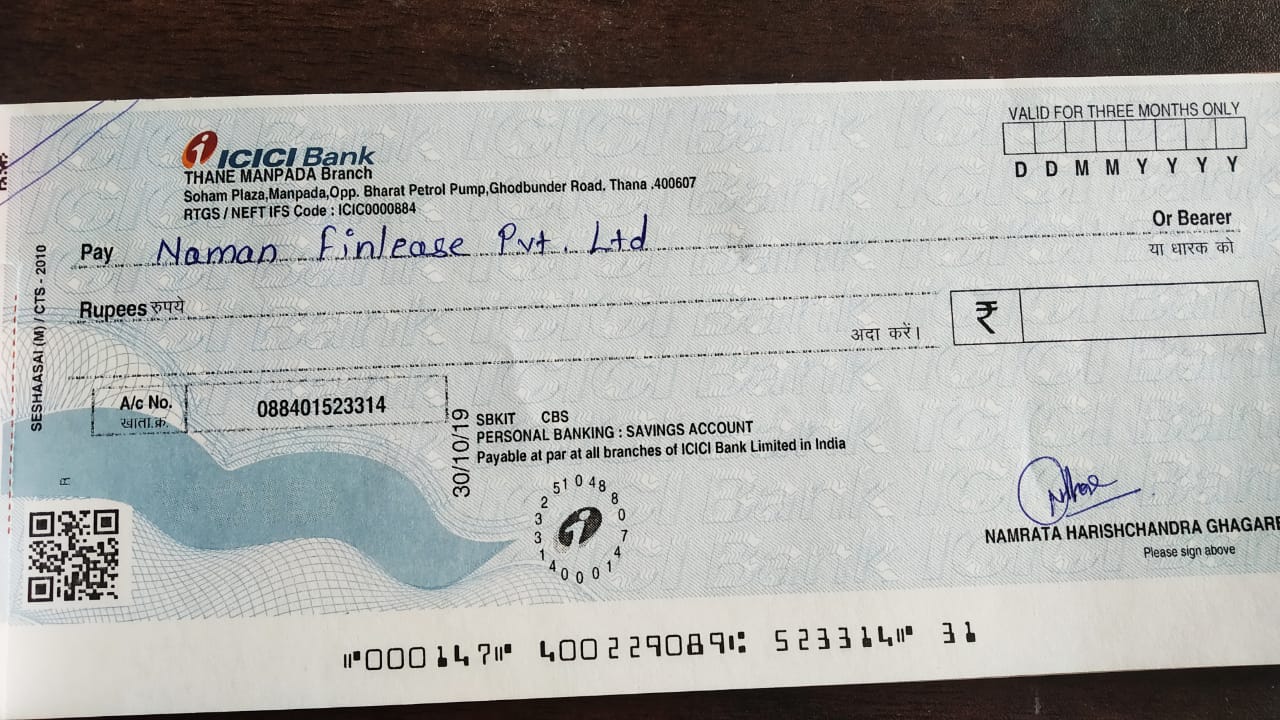 VALID FOR THREE MONTHS ONLY
D D M M Y Y Y Y
ICICI Bank
THANE MANPADA Branch
Soham Plaza,Manpada,Opp. Bharat Petrol Pump,Ghodbunder Road, Thana .400607
RTGS / NEFT IFS Code : ICIC0000884
Pay Naman Finlease Pvt. Ltd
Or Bearer
या धारक को
Rupees रुपये
अदा करें।
₹
A/c No.
खाता.क्र.
088401523314
SESHAASAI (M) / CTS - 2010
30/10/19
SBKIT CBS
PERSONAL BANKING : SAVINGS ACCOUNT
Payable at par at all branches of ICICI Bank Limited in India
NAMRATA HARISHCHANDRA GHAGARE
Please sign above
⑈000147⑈ 400229089⑆ 523314⑈ 31